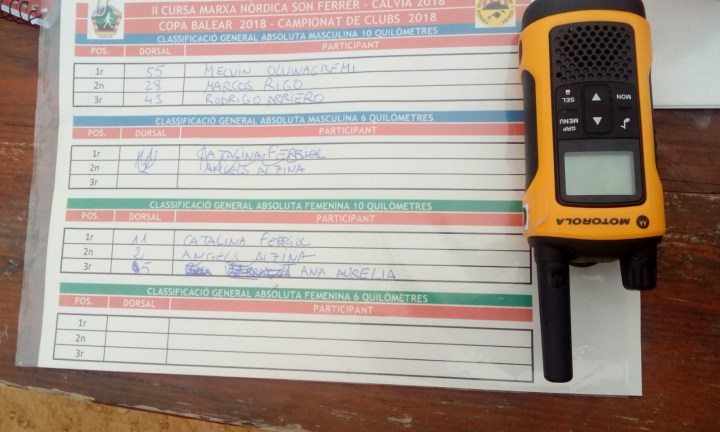 II CURSA MARXA NÒRDICA SON FERRER - CALVIÀ 2018
COPA BALEAR 2018 - CAMPIONAT DE CLUBS 2018
CLASSIFICACIÓ GENERAL ABSOLUTA MASCULINA 10 QUILÒMETRES
POS. DORSAL PARTICIPANT
1r 55 MELVIN
2n 28 MARCOS RIGO
3r 43 RODRIGO
CLASSIFICACIÓ GENERAL ABSOLUTA MASCULINA 6 QUILÒMETRES
POS. DORSAL PARTICIPANT
1r 11 CATALINA FERRIOL
2n 2 ANGELS ALZINA
3r
CLASSIFICACIÓ GENERAL ABSOLUTA FEMENINA 10 QUILÒMETRES
POS. DORSAL PARTICIPANT
1r 11 CATALINA FERRIOL
2n 2 ANGELS ALZINA
3r 5 ANA AURELIA
CLASSIFICACIÓ GENERAL ABSOLUTA FEMENINA 6 QUILÒMETRES
POS. DORSAL PARTICIPANT
1r
2n
3r
MON
SEL
GRP
MENU
MOTOROLA